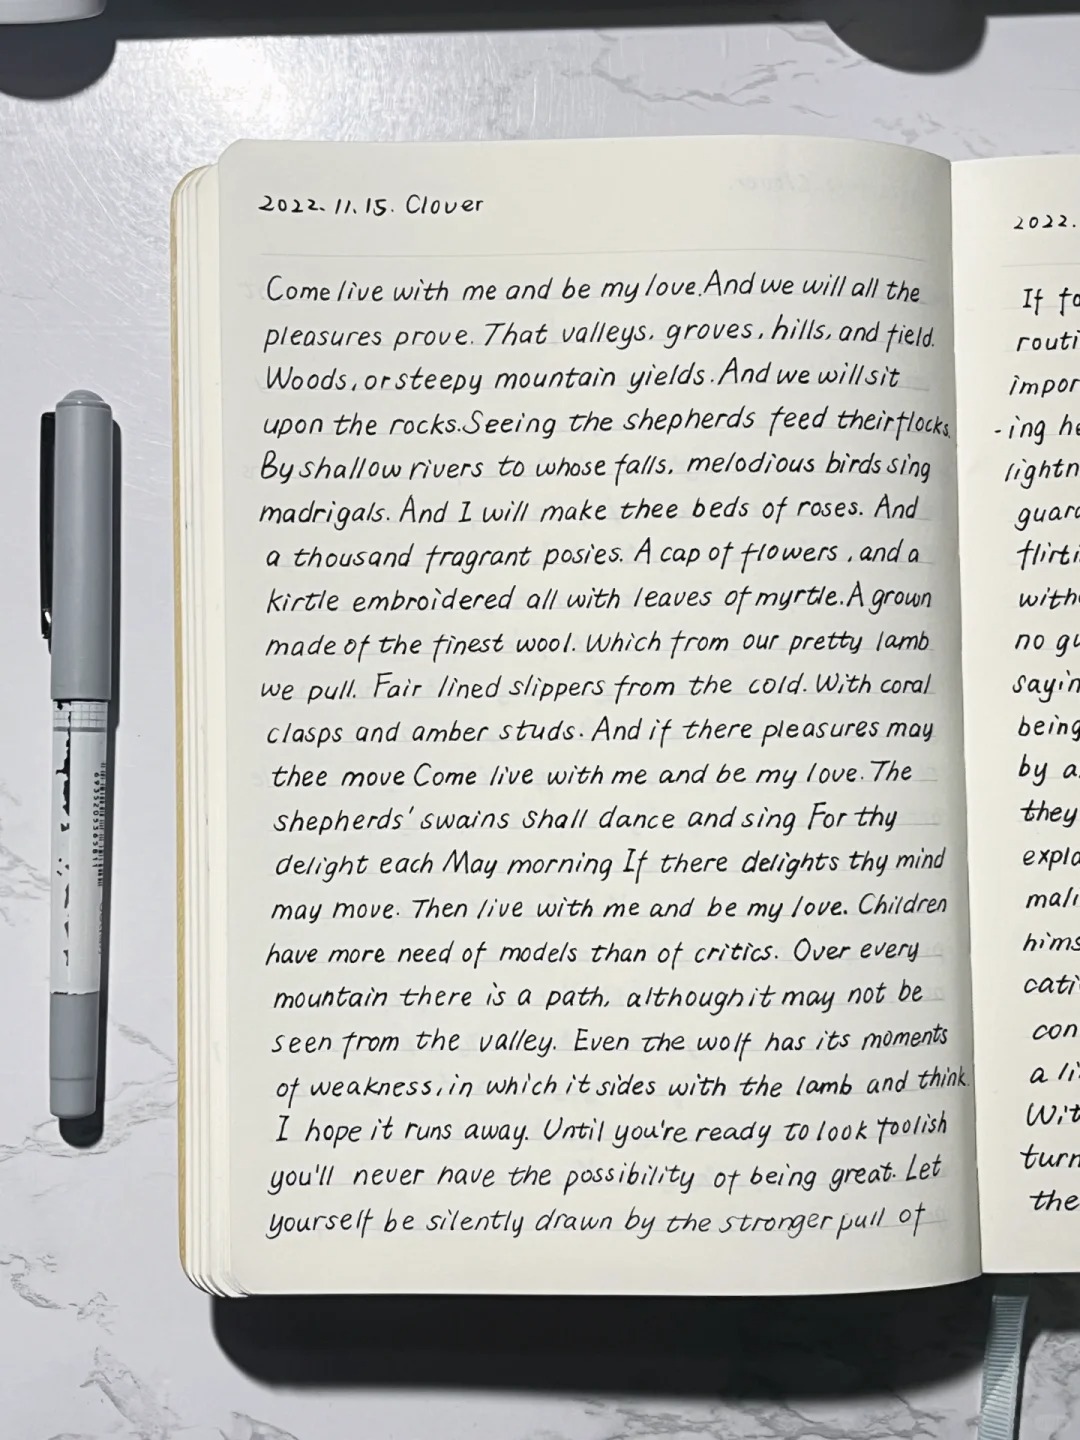 2022.11.15. Clover
Come live with me and be my love. And we will all the
pleasures prove. That valleys, groves, hills, and field.
Woods, or steepy mountain yields. And we will sit
upon the rocks. Seeing the shepherds feed their flocks.
By shallow rivers to whose falls, melodious birds sing
madrigals. And I will make thee beds of roses. And
a thousand fragrant posies. A cap of flowers, and a
kirtle embroidered all with leaves of myrtle. A grown
made of the finest wool. Which from our pretty lamb
we pull. Fair lined slippers from the cold. With coral
clasps and amber studs. And if there pleasures may
thee move Come live with me and be my love. The
shepherds' swains shall dance and sing For thy
delight each May morning If there delights thy mind
may move. Then live with me and be my love. Children
have more need of models than of critics. Over every
mountain there is a path, although it may not be
seen from the valley. Even the wolf has its moments
of weakness, in which it sides with the lamb and think
I hope it runs away. Until you're ready to look foolish
you'll never have the possibility of being great. Let
yourself be silently drawn by the stronger pull of
2022.
If
routi
impor
-ing he
lightn
guard
flirti
with
no gu
sayin
being
by a
they
expla
mali
hims
cati
con
a li
Wit
turn
the